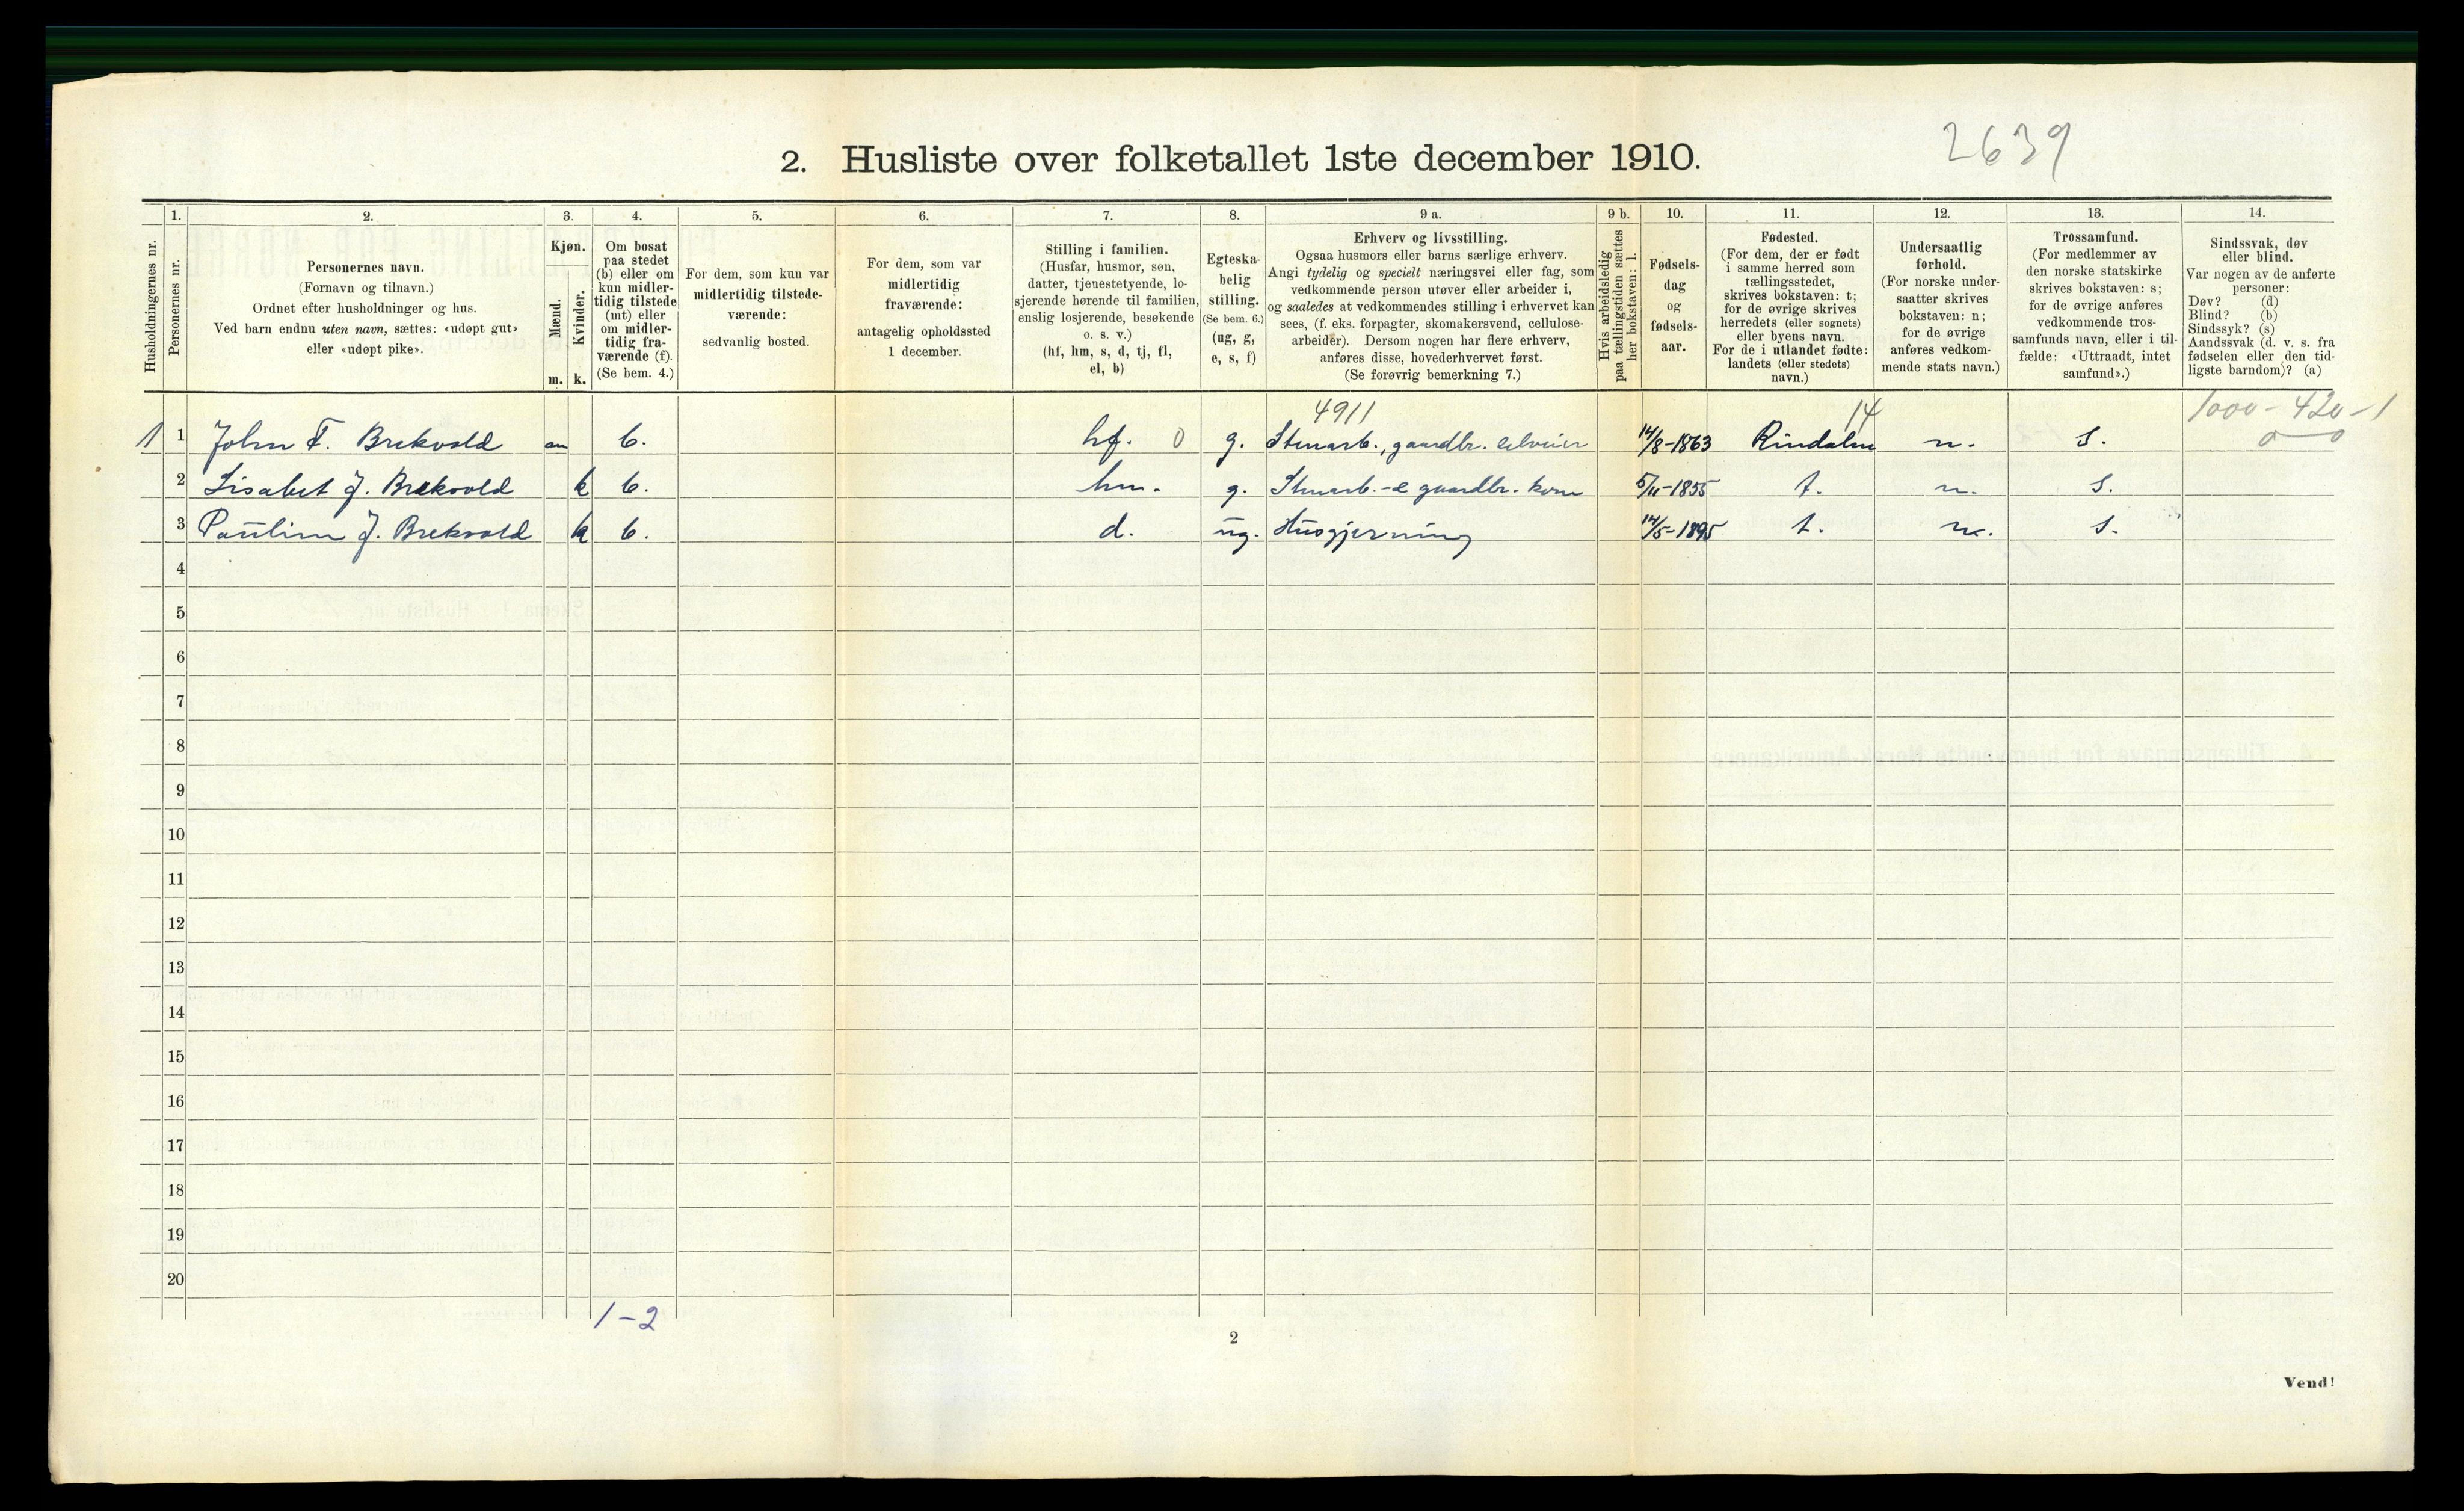 2639
2. Husliste over folketallet 1ste december 1910.
Husholdningernes nr.
1.
Personernes nr.
2.
Personernes navn.
(Fornavn og tilnavn.)
Ordnet efter husholdninger og hus.
Ved barn endnu uten navn, sættes: «udøpt gut»
eller «udøpt pike».
3.
Kjøn.
Mænd.
Kvinder.
m. k.
4.
Om bosat
paa stedet
(b) eller om
kun midler-
tidig tilstede
(mt) eller
om midler-
tidig fra-
værende (f).
(Se bem. 4.)
5.
For dem, som kun var
midlertidig tilstede-
værende:
sedvanlig bosted.
6.
For dem, som var
midlertidig
fraværende:
antagelig opholdssted
1 december.
7.
Stilling i familien.
(Husfar, husmor, søn,
datter, tjenestetyende, lo-
sjerende hørende til familien,
enslig losjerende, besøkende
o. s. v.)
(hf, hm, s, d, tj, fl,
el, b)
8.
Egteska-
belig
stilling.
(Se bem. 6.)
(ug, g,
e, s, f)
9 a.
Erhverv og livsstilling.
Ogsaa husmors eller barns særlige erhverv.
Angi tydelig og specielt næringsvei eller fag, som
vedkommende person utøver eller arbeider i,
og saaledes at vedkommendes stilling i erhvervet kan
sees, (f. eks. forpagter, skomakersvend, cellulose-
arbeider). Dersom nogen har flere erhverv,
anføres disse, hovederhvervet først.
(Se forøvrig bemerkning 7.)
9 b.
Hvis arbeidsledig
paa tællingstiden sættes
her bokstaven: l.
10.
Fødsels-
dag
og
fødsels-
aar.
11.
Fødested.
(For dem, der er født
i samme herred som
tællingsstedet,
skrives bokstaven: t;
for de øvrige skrives
herredets (eller sognets)
eller byens navn.
For de i utlandet fødte:
landets (eller stedets)
navn.)
12.
Undersaatlig
forhold.
(For norske under-
saatter skrives
bokstaven: n;
for de øvrige
anføres vedkom-
mende stats navn.)
13.
Trossamfund.
(For medlemmer av
den norske statskirke
skrives bokstaven: s;
for de øvrige anføres
vedkommende tros-
samfunds navn, eller i til-
fælde: «Uttraadt, intet
samfund».)
14.
Sindssvak, døv
eller blind.
Var nogen av de anførte
personer:
Døv? (d)
Blind? (b)
Sindssyk? (s)
Aandssvak (d. v. s. fra
fødselen eller den tid-
ligste barndom)? (a)
4911 14 1000-420-1
1 1 John F. Brekvold m b. hf. 0 g. Stenarb., gaardbr. selveier 14/8-1863 Rindalen n. s. 0 0
2 Lisabet J. Brekvold k b. hm. g. Stenarb.-e gaardbr. kone 5/11-1855 t. n. s.
3 Pauline J. Brekvold k b. d. ug. Husgjerning 14/5-1895 t. n. s.
4
5
6
7
8
9
10
11
12
13
14
15
16
17
18
19
20
1-2
2
Vend!